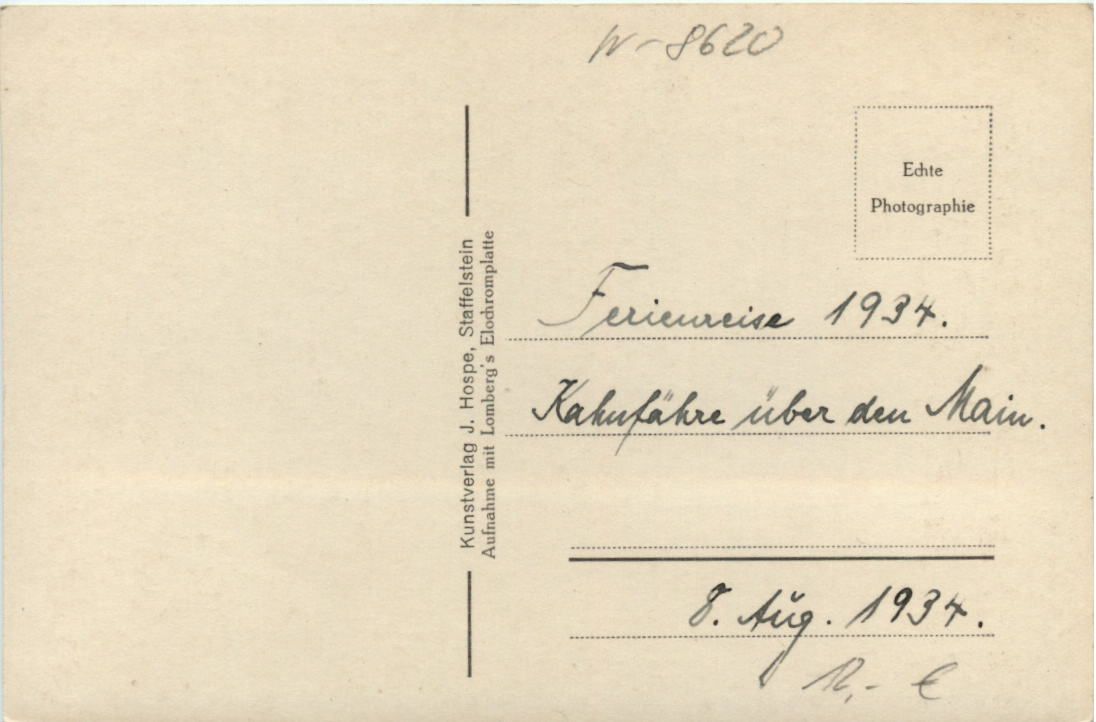 W-8620
Kunstverlag J. Hospe, Staffelstein
Aufnahme mit Lomberg's Elochromplatte
Echte
Photographie
Ferienreise 1934.
Kahnfähre über den Main.
8. Aug. 1934.
12,- €